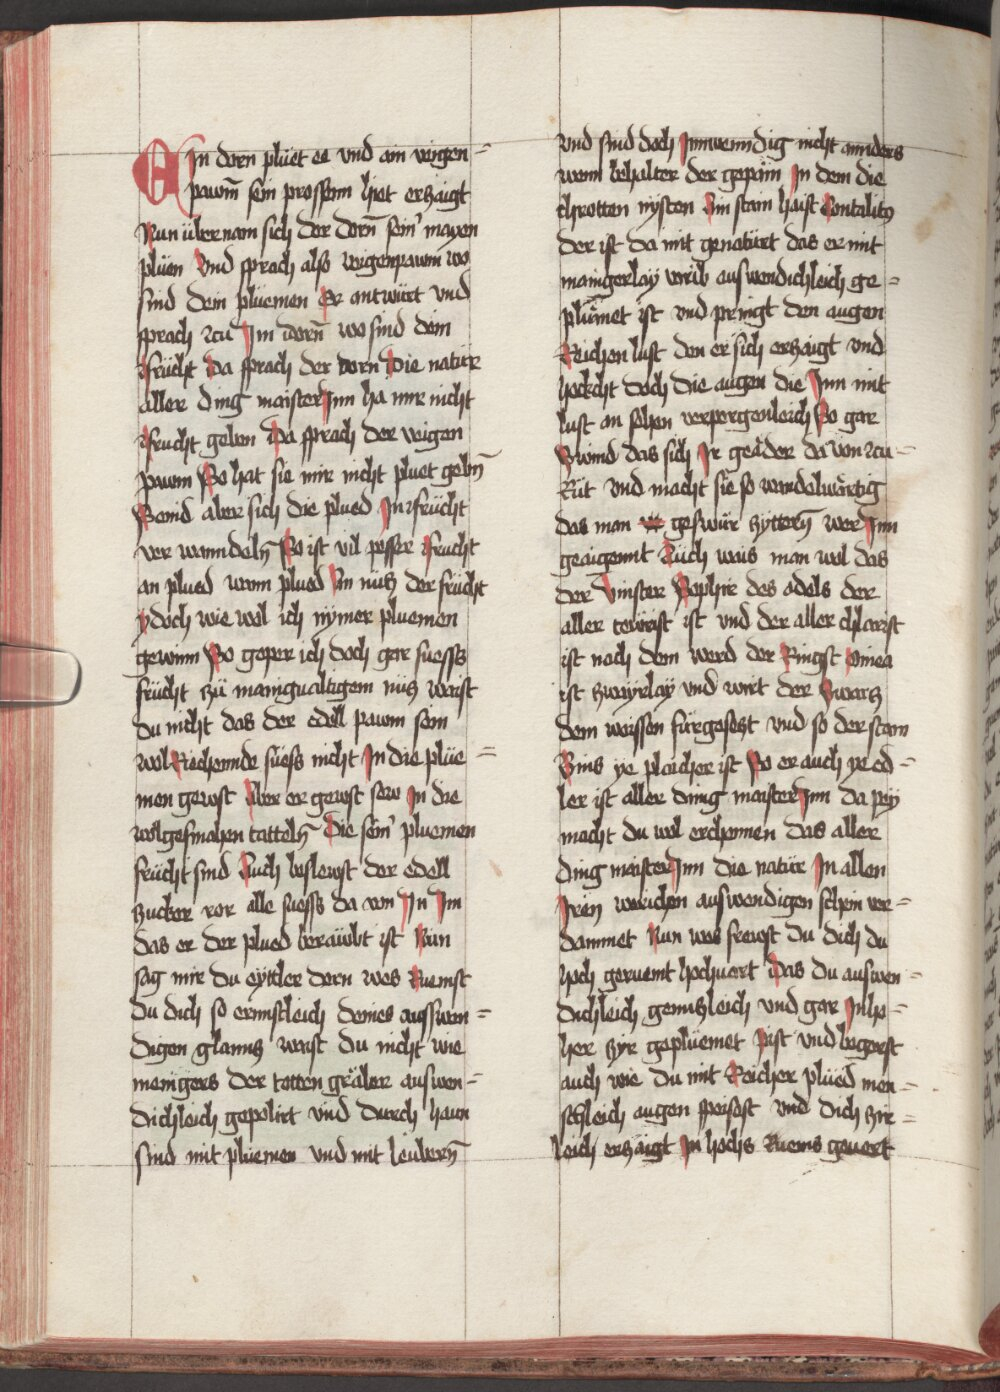 Ein dorn plüet ee vnd ain veigen=
pawm̃ sein prossenn hiet erzaigt
Nun übernam sich der dorñ sein' mayen
plüen Vnd sprach also veigenpawm wo
sind dein plüemen Er antwürt vnd
sprach zcu Im dorñ wo sind dein
frücht Da sprach der dorn Die natür
aller ding maisterInn ha mir nicht
frucht geben Da sprach der veigen
pawm So hat sie mir nicht pluet gebñ
Seind aber sich die plued In frücht
ver wanndelñ So ist vil pesser frucht
an plued wann plued An nücz der frücht
ydoch wie wol ich nymer pluemen
gewinn So geper ich doch gar suesss
frücht zü manigualtigem nücz waist
du nicht das der edell pawm sein
wol Riechennde süess nicht In die plüe=
men gewst Aber er gewst sew In die
wolgesmahen tattelñ Die sein' pluemen
frücht sind Auch beslewst der edell
zucker ror alle suesss da von In Im
das er der plued beraübt ist Nun
sag mir du eyttler dorn wes Ruemst
du dich so ernnstleich deines ausswen=
digen glanncz waist du nicht wie
manigers der totten gräber auswen=
dichleich gepolirt vnd durch haun
sind mit plüemen vnd mit leubern̄
vnd sind doch Innwenndig nicht annders
wenn behalter der gepain In dem die
chrotten nysten Ein stain haist Contality
der ist da mit genatürt das er mit
mangerlay varib auswendichleich ge=
plümet ist vnd pringt den augen
Reichen lust den er sich erzaigt vnd
heckcht doch die augen die Inn mit
lust an sehen verporgenleich So gar
Swind das sich Ir geäder da von zcu=
Rüt vnd macht sie so wandelwärtig
das man geswür zytterñ wer Inn
geaigennt Auch wais man wol das
der Vinster Saphir des adels der
aller tewrist ist vnd der aller chlarist
ist nach dem werd der Ringst Pinea
ist zwayrlay vnd wirt der Swarcz
dem weissen fürgesetzt vnd so der stain
Vins ye plaicher ist So er auch ye ed=
ler ist aller ding maisterInn da pey
macht du wol erchennen das aller
ding maisterInn die natür In allen
Iren̄ werichen auswendigen schein ver=
dammet Nun was frewst du dich du
hoch geruemt hochuart Das du auswen=
dichleich gennczleich vnd gar Inhe=
her zyr geplüemet pist vnd begerst
auch wie du mit Reicher plüed men=
schleich augen speisest vnd dich zir=
leich erzaigt In hochs Ruems geuert